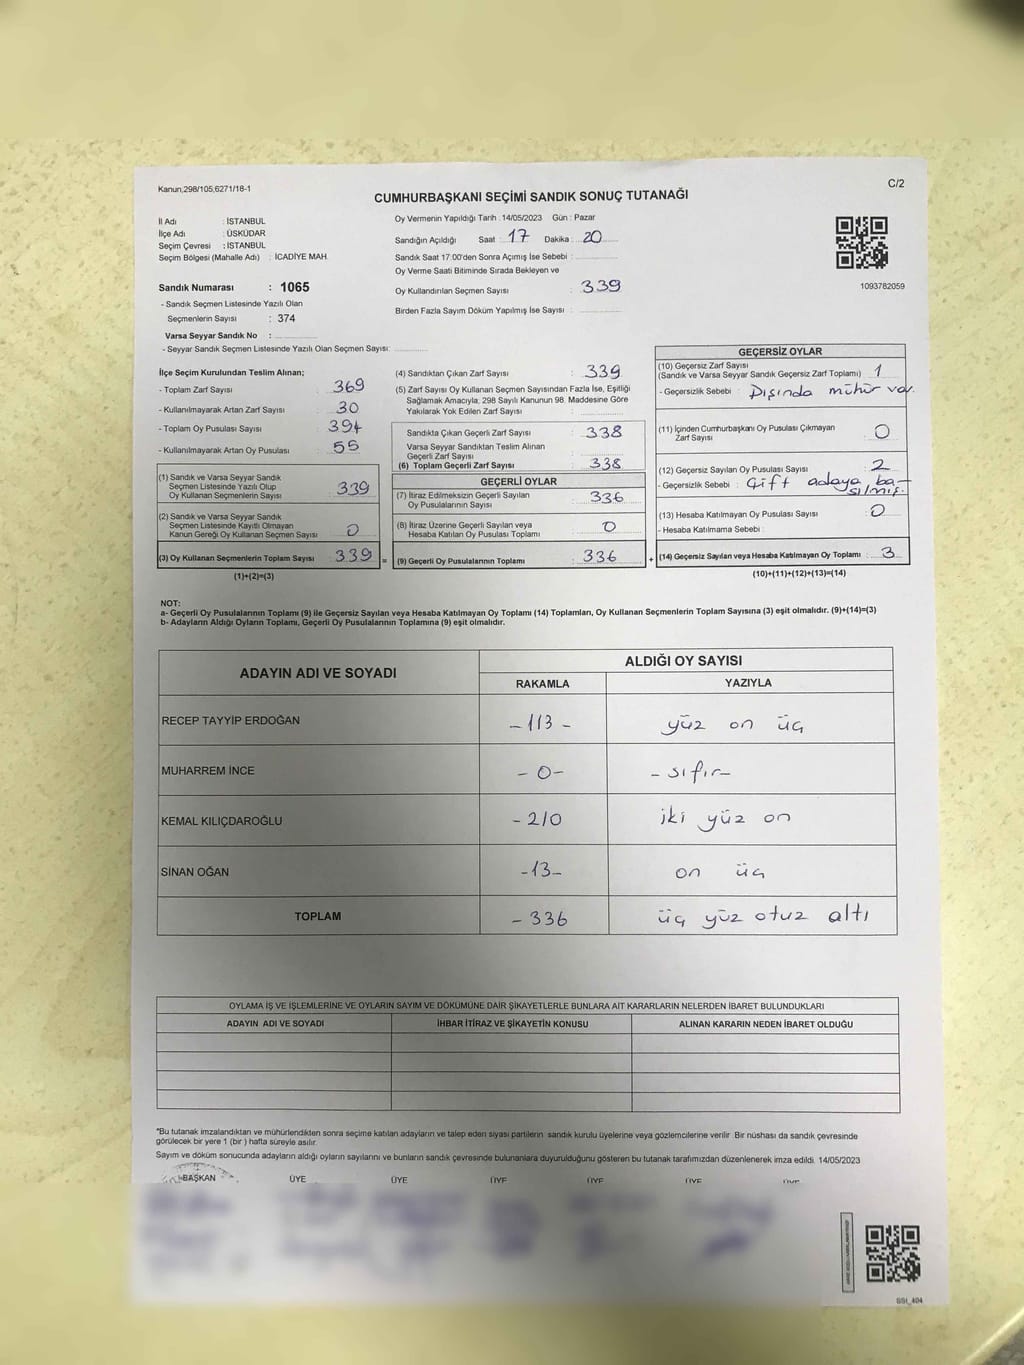 Kanun;298/105,6271/18-1
C/2
CUMHURBAŞKANI SEÇİMİ SANDIK SONUÇ TUTANAĞI
İl Adı : İSTANBUL
İlçe Adı : ÜSKÜDAR
Seçim Çevresi : İSTANBUL
Seçim Bölgesi (Mahalle Adı) : İCADİYE MAH.
Sandık Numarası : 1065
- Sandık Seçmen Listesinde Yazılı Olan
Seçmenlerin Sayısı : 374
Varsa Seyyar Sandık No :
- Seyyar Sandık Seçmen Listesinde Yazılı Olan Seçmen Sayısı:
Oy Vermenin Yapıldığı Tarih :14/05/2023 Gün : Pazar
Sandığın Açıldığı Saat : 17 Dakika : 20
Sandık Saat 17.00'den Sonra Açımış İse Sebebi :
Oy Verme Saati Bitiminde Sırada Bekleyen ve
Oy Kullandırılan Seçmen Sayısı : 339
Birden Fazla Sayım Döküm Yapılmış İse Sayısı :
1093782059
İlçe Seçim Kurulundan Teslim Alınan;
- Toplam Zarf Sayısı : 369
- Kullanılmayarak Artan Zarf Sayısı : 30
- Toplam Oy Pusulası Sayısı : 394
- Kullanılmayarak Artan Oy Pusulası : 55
(1) Sandık ve Varsa Seyyar Sandık
Seçmen Listesinde Yazılı Olup
Oy Kullanan Seçmenlerin Sayısı : 339
(2) Sandık ve Varsa Seyyar Sandık
Seçmen Listesinde Kayıtlı Olmayan
Kanun Gereği Oy Kullanan Seçmen Sayısı : 0
(3) Oy Kullanan Seçmenlerin Toplam Sayısı : 339 =
(1)+(2)=(3)
(4) Sandıktan Çıkan Zarf Sayısı : 339
(5) Zarf Sayısı Oy Kullanan Seçmen Sayısından Fazla İse, Eşitliği
Sağlamak Amacıyla, 298 Sayılı Kanunun 98. Maddesine Göre
Yakılarak Yok Edilen Zarf Sayısı :
Sandıkta Çıkan Geçerli Zarf Sayısı : 338
Varsa Seyyar Sandıktan Teslim Alınan
Geçerli Zarf Sayısı :
(6) Toplam Geçerli Zarf Sayısı : 338
GEÇERLİ OYLAR
(7) İtiraz Edilmeksizin Geçerli Sayılan
Oy Pusulalarının Sayısı : 336
(8) İtiraz Üzerine Geçerli Sayılan veya
Hesaba Katılan Oy Pusulası Toplamı : 0
(9) Geçerli Oy Pusulalarının Toplamı : 336 +
GEÇERSİZ OYLAR
(10) Geçersiz Zarf Sayısı
(Sandık ve Varsa Seyyar Sandık Geçersiz Zarf Toplamı) : 1
- Geçersizlik Sebebi : Dışında mühür var.
(11) İçinden Cumhurbaşkanı Oy Pusulası Çıkmayan
Zarf Sayısı : 0
(12) Geçersiz Sayılan Oy Pusulası Sayısı : 2
- Geçersizlik Sebebi : Çift adaya ba-
sılmış.
(13) Hesaba Katılmayan Oy Pusulası Sayısı : 0
- Hesaba Katılmama Sebebi :
(14) Geçersiz Sayılan veya Hesaba Katılmayan Oy Toplamı : 3
(10)+(11)+(12)+(13)=(14)
NOT:
a- Geçerli Oy Pusulalarının Toplamı (9) ile Geçersiz Sayılan veya Hesaba Katılmayan Oy Toplamı (14) Toplamları, Oy Kullanan Seçmenlerin Toplam Sayısına (3) eşit olmalıdır. (9)+(14)=(3)
b- Adayların Aldığı Oyların Toplamı, Geçerli Oy Pusulalarının Toplamına (9) eşit olmalıdır.
ADAYIN ADI VE SOYADI
ALDIĞI OY SAYISI
RAKAMLA YAZIYLA
RECEP TAYYİP ERDOĞAN - 113 - yüz on üç
MUHARREM İNCE - 0 - - sıfır -
KEMAL KILIÇDAROĞLU - 210 iki yüz on
SİNAN OĞAN - 13 - on üç
TOPLAM - 336 üç yüz otuz altı
OYLAMA İŞ VE İŞLEMLERİNE VE OYLARIN SAYIM VE DÖKÜMÜNE DAİR ŞİKAYETLERLE BUNLARA AİT KARARLARIN NELERDEN İBARET BULUNDUKLARI
ADAYIN ADI VE SOYADI İHBAR İTİRAZ VE ŞİKAYETİN KONUSU ALINAN KARARIN NEDEN İBARET OLDUĞU
*Bu tutanak imzalandıktan ve mühürlendikten sonra seçime katılan adayların ve talep eden siyasi partilerin sandık kurulu üyelerine veya gözlemcilerine verilir. Bir nüshası da sandık çevresinde
görülecek bir yere 1 (bir ) hafta süreyle asılır.
Sayım ve döküm sonucunda adayların aldığı oyların sayılarını ve bunların sandık çevresinde bulunanlara duyurulduğunu gösteren bu tutanak tarafımızdan düzenlenerek imza edildi. 14/05/2023
BAŞKAN ÜYE ÜYE ÜYE ÜYE ÜYE ÜYE
SSt_404